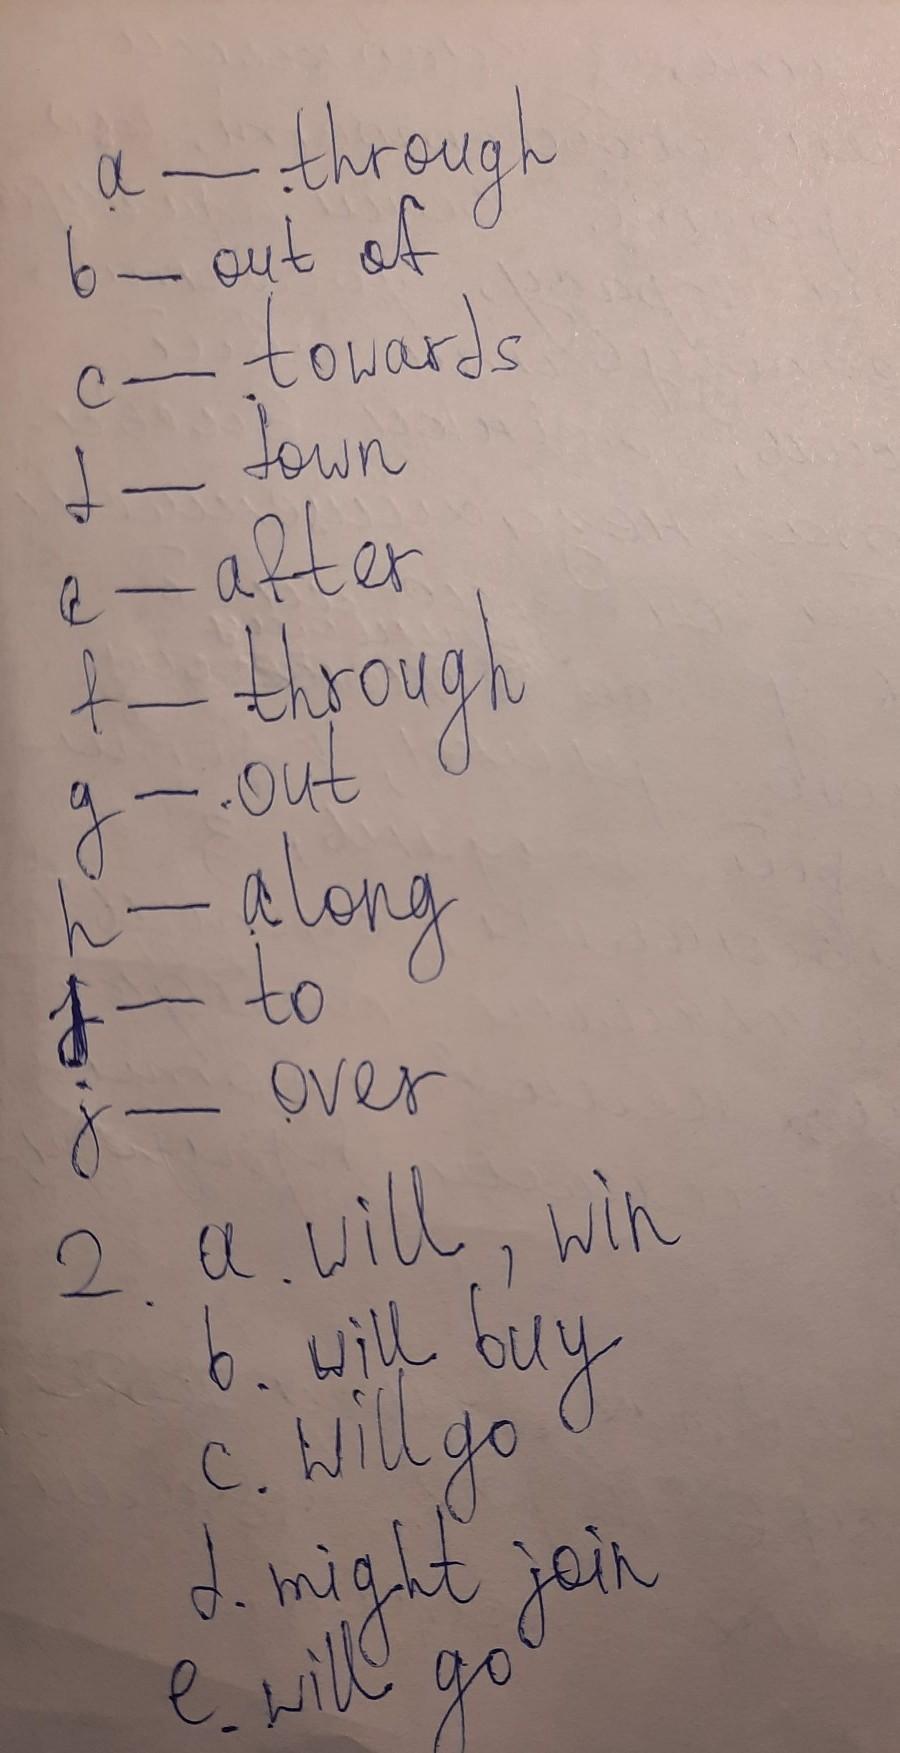 a — through
b — out of
c — towards
d — down
e — after
f — through
g — out
h — along
— to
j — over
2. a. will, win
b. will buy
c. will go
d. might join
e. will go